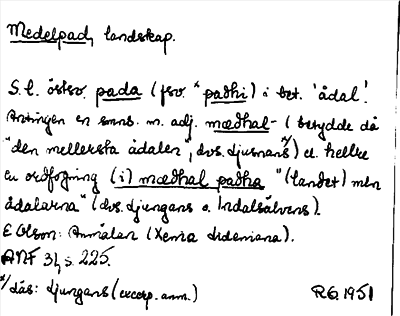 Medelpad, landskap.
S. l. östsv. pada (fsv. *paðhi) i bet. 'ådal'.
Antingen en sms. m. adj. mæðhal- (betydde då
"den mellersta ådalen", dvs. Ljusnans*/) el. hellre
en ordfogning (i) mæðhal paðha "(landet) mln
ådalarna" (dvs. Ljungans o. Indalsälvens).
E Olson: Anmälan (Xenia Lideniana).
ANF 31, s. 225.
*/läs: Ljungans (excerp. anm.)
RG. 1951